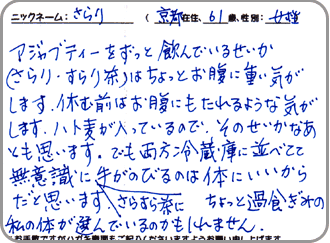 ニックネーム: さらり ( 京都在住、61歳、性別: 女性
アジャブティーをずっと飲んでいるせいか
(さらり・すらり茶)はちょっとお腹に重い気が
します。休む前はお腹にもたれるような気が
します。ハト麦が入っているので、そのせいかなあ
とも思います。でも両方冷蔵庫に並べてて
無意識に手がのびるのは体にいいから
だと思います さらすら茶に ちょっと過食ぎみの
私の体が選んでいるのかもしれません。